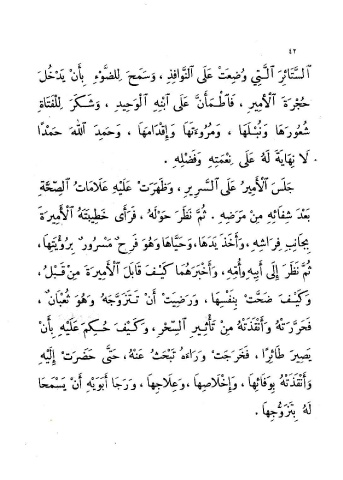 ٤٢
السَّتَائِرَ الَّتِي وُضِعَتْ عَلَى النَّوَافِذِ ، وَسَمَحَ لِلضَّوْءِ بِأَنْ يَدْخُلَ
حُجْرَةَ الْأَمِيرِ ، فَاطْمَأَنَّ عَلَى ابْنِهِ الْوَحِيدِ ، وَشَكَرَ لِلْفَتَاةِ
شُعُورَهَا وَنُبْلَهَا ، وَمُرُوءَتَهَا وَإِقْدَامَهَا ، وَحَمِدَ اللهَ حَمْدًا
لَا نِهَايَةَ لَهُ عَلَى نِعْمَتِهِ وَفَضْلِهِ .
جَلَسَ الْأَمِيرُ عَلَى السَّرِيرِ ، وَظَهَرَتْ عَلَيْهِ عَلَامَاتُ الصِّحَّةِ
بَعْدَ شِفَائِهِ مِنْ مَرَضِهِ . ثُمَّ نَظَرَ حَوْلَهُ ، فَرَأَى خَطِيبَتَهُ الْأَمِيرَةَ
بِجَانِبِ فِرَاشِهِ ، وَأَخَذَ يَدَهَا ، وَحَيَّاهَا وَهُوَ فَرِحٌ مَسْرُورٌ بِرُؤْيَتِهَا ،
ثُمَّ نَظَرَ إِلَى أَبِيهِ وَأُمِّهِ ، وَأَخْبَرَهُمَا كَيْفَ قَابَلَ الْأَمِيرَةَ مِنْ قَبْلُ ،
وَكَيْفَ ضَحَّتْ بِنَفْسِهَا ، وَرَضِيَتْ أَنْ تَتَزَوَّجَهُ وَهُوَ ثُعْبَانٌ ،
فَحَرَّرَتْهُ وَأَنْقَذَتْهُ مِنْ تَأْثِيرِ السِّحْرِ ، وَكَيْفَ حُكِمَ عَلَيْهِ بِأَنْ
يَصِيرَ طَائِرًا ، فَخَرَجَتْ وَرَاءَهُ تَبْحَثُ عَنْهُ ، حَتَّى حَضَرَتْ إِلَيْهِ
وَأَنْقَذَتْهُ بِوَفَائِهَا ، وَإِخْلَاصِهَا ، وَعِلَاجِهَا ، وَرَجَا أَبَوَيْهِ أَنْ يَسْمَحَا
لَهُ بِتَزَوُّجِهَا .